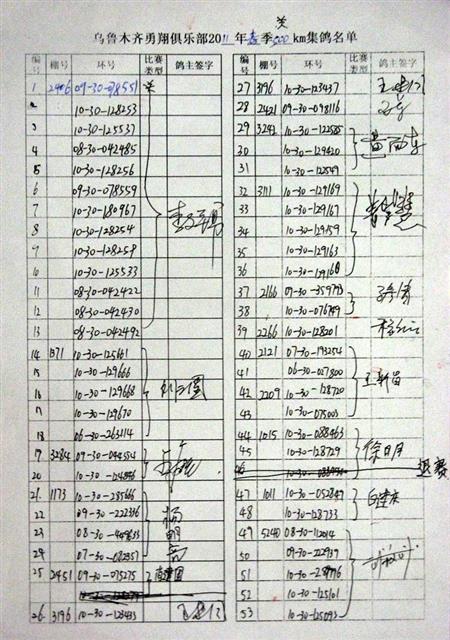 乌鲁木齐勇翔俱乐部2011年春季500km集鸽名单
关
编号 棚号 环号 比赛类型 鸽主签字
1 2406 09-30-078551 关
2 10-30-128253
3 10-30-125537
4 08-30-042485
5 10-30-128256
6 09-30-078559
7 10-30-180967
8 10-30-128254
9 10-30-128258
10 10-30-125533
11 08-30-042422
12 08-30-042430
13 08-30-042492
14 1371 10-30-125161
15 10-30-129666
16 10-30-129668
17 10-30-129670
18 06-30-263114
19 3284 09-30-044554
20 10-30-124896
21 1173 10-30-285666
22 09-30-222336
23 08-30-
24 07-30-082357
25 2451 09-30-075275
26 3196 10-30-123433
编号 棚号 环号 比赛类型 鸽主签字
27 3196 10-30-123437
28 2421 09-30-098116
29 3242 10-30-122585
30 10-30-129420
31 10-30-122549
32 3111 10-30-129169
33 10-30-129167
34 10-30-129159
35 10-30-129163
36 10-30-129168
37 2166 09-30-359793
38 10-30-076749
39 2266 10-30-128201
40 2121 07-30-193254
41 06-30-027800
42 2209 10-30-128720 王新苗
43 10-30-075003
44 1015 10-30-088463
45 10-30-128729 徐日月
46 退赛
47 1011 10-30-052847
48 10-30-128733
49 5240 08-30-112014
50 09-30-222939
51 10-30-
52 10-30-125101
53 10-30-125093